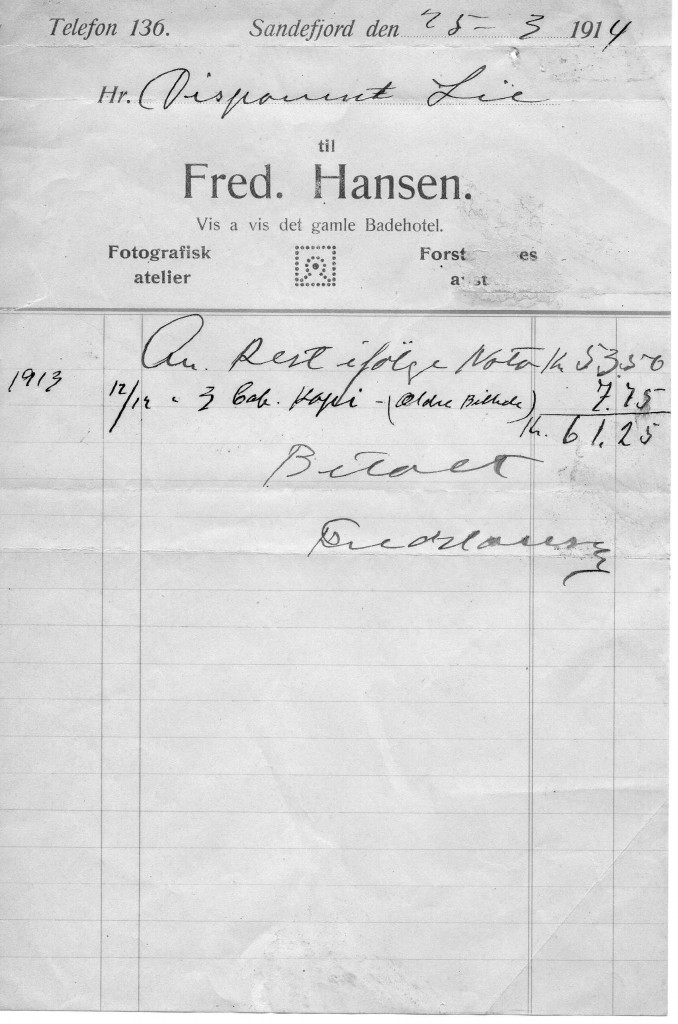 Telefon 136. Sandefjord den 25 - 3 1914
Hr. Disponent Lie
til
Fred. Hansen.
Vis a vis det gamle Badehotel.
Fotografisk Forst es
atelier a st
An. Rest ifølge Nota Kr 53.50
1913 12/12 " 3 Cab. Kopi - (Ældre Billede) 7.75
Kr. 61.25
Betalt
Fred Hansen